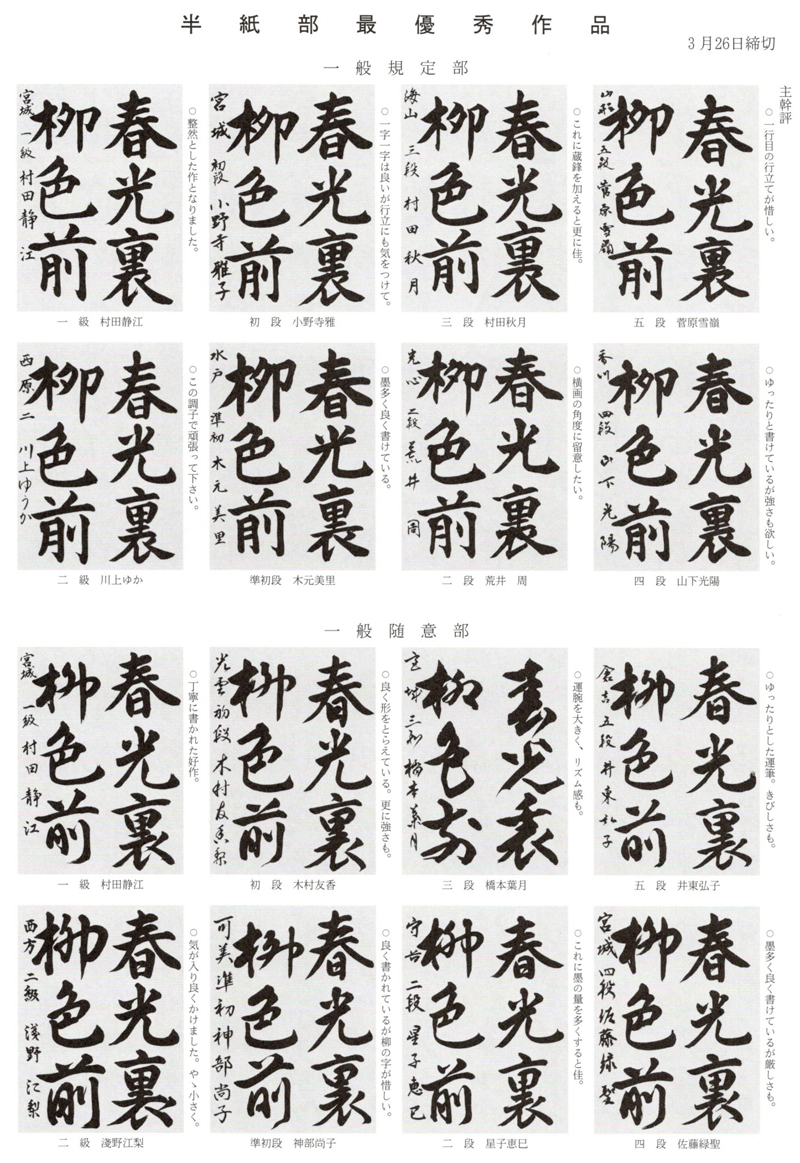 半紙部最優秀作品
3月26日締切
一般規定部
主幹評
○一行目の行立てが惜しい。
春光裏
柳色前
山形 五段 菅原雪嶺
五 段 菅原雪嶺
○これに蔵鋒を加えると更に佳。
春光裏
柳色前
海山 三段 村田秋月
三 段 村田秋月
○一字一字は良いが行立にも気をつけて。
春光裏
柳色前
宮城 初段 小野寺雅子
初 段 小野寺雅
○整然とした作となりました。
春光裏
柳色前
宮城 一級 村田静江
一 級 村田静江
○ゆったりと書けているが強さも欲しい。
春光裏
柳色前
香川 四段 山下光陽
四 段 山下光陽
○横画の角度に留意したい。
春光裏
柳色前
光心 二段 荒井 周
二 段 荒井 周
○墨多く良く書けている。
春光裏
柳色前
水戸 準初 木元美里
準初段 木元美里
○この調子で頑張って下さい。
春光裏
柳色前
西原 二 川上ゆうか
二 級 川上ゆか
一般随意部
○ゆったりとした運筆。きびしさも。
春光裏
柳色前
倉吉 五段 井東弘子
五 段 井東弘子
○運腕を大きく、リズム感も。
春光裏
柳色前
宮城 三段 橋本葉月
三 段 橋本葉月
○良く形をとらえている。更に強さも。
春光裏
柳色前
光雲 初段 木村友香梨
初 段 木村友香
○丁寧に書かれた好作。
春光裏
柳色前
宮城 一級 村田静江
一 級 村田静江
○墨多く良く書けているが厳しさも。
春光裏
柳色前
宮城 四段 佐藤緑聖
四 段 佐藤緑聖
○これに墨の量を多くすると佳。
春光裏
柳色前
二段 星子恵巳
二 段 星子恵巳
○良く書かれているが柳の字が惜しい。
春光裏
柳色前
可美 準初 神部尚子
準初段 神部尚子
○気が入り良くかけました。やゝ小さく。
春光裏
柳色前
西方 二級 浅野江梨
二 級 淺野江梨